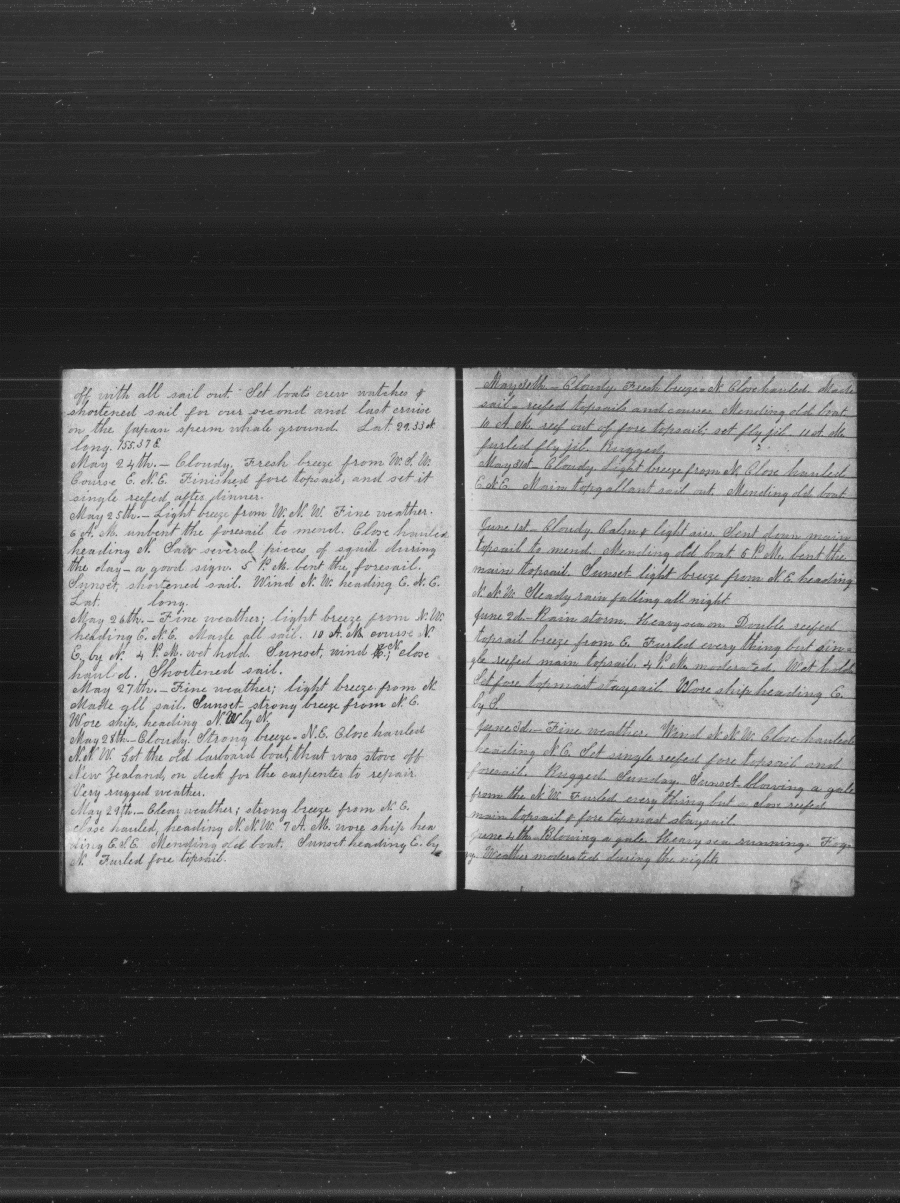 off with all sail out. Set boats crew watches &
shortened sail for our second and last cruise
on the Japan sperm whale ground. Lat. 29.33 N
long. 155.37 E.
May 24th. – Cloudy, Fresh breeze from W.S.W.
Course E.N.E. Finished fore topsail, and set it
single reefed after dinner.
May 25th. – Light breeze from W.N.W. Fine weather.
6 A.M. unbent the foresail to mend. Close hauled
heading N. Saw several pieces of squid during
the day – a good sign. 5 P.M. bent the foresail.
Sunset, shortened sail. Wind N.W. heading E.N.E.
Lat. long.
May 26th. – Fine weather; light breeze from N.W.
heading E.N.E. Made all sail. 10 A.M. course N.
E. by N. 4 P.M. wet hold. Sunset, wind N; close
haul'd. Shortened sail.
May 27th. – Fine weather; light breeze from N
Made all sail. Sunset strong breeze from N.E.
Wore ship, heading N.W by N.
May 28th. – Cloudy. Strong breeze. N.E. Close hauled
N.N.W. Got the old larboard boat, that was stove off
New Zealand, on deck for the carpenter to repair.
Very rugged weather.
May 29th. – Clear weather; strong breeze from N.E.
close hauled, heading N.N.W. 7 A.M. wore ship hea
ding E.S.E. Mending old boat. Sunset heading E. by
N. Furled fore topsail.
May 30th – Cloudy. Fresh breeze N. Close hauled. Made
sail – reefed topsails and courses. Mending old boat
10 A.M. reef out of fore topsail; set fly jib. 11 A.M.
furled fly jib. Rugged.
May 31st – Cloudy. Light breeze from N. Close hauled
Main topgallant sail out. Mending old boat
June 1st – Cloudy. Calm & light airs. Sent down main
topsail to mend. Mending old boat. 5 P.M. bent the
main topsail. Sunset light breeze from N.E. heading
N.N.W. Steady rain falling all night
June 2d – Rain storm. Heavy sea on. Double reefed
topsail breeze from E. Furled everything but sin-
gle reefed main topsail. 4 P.M. moderated. Wet hold.
Set fore topmast staysail. Wore ship heading E.
by S.
June 3d – Fine weather. Wind N.N.W. Close hauled
heading N.E. Set single reefed fore topsail and
foresail. Rugged Sunday. Sunset blowing a gale
from the N.W. Furled everything but a close reefed
main topsail & fore topmast staysail.
June 4th – Blowing a gale. Heavy sea running. Fog-
gy. Weather moderated during the night.